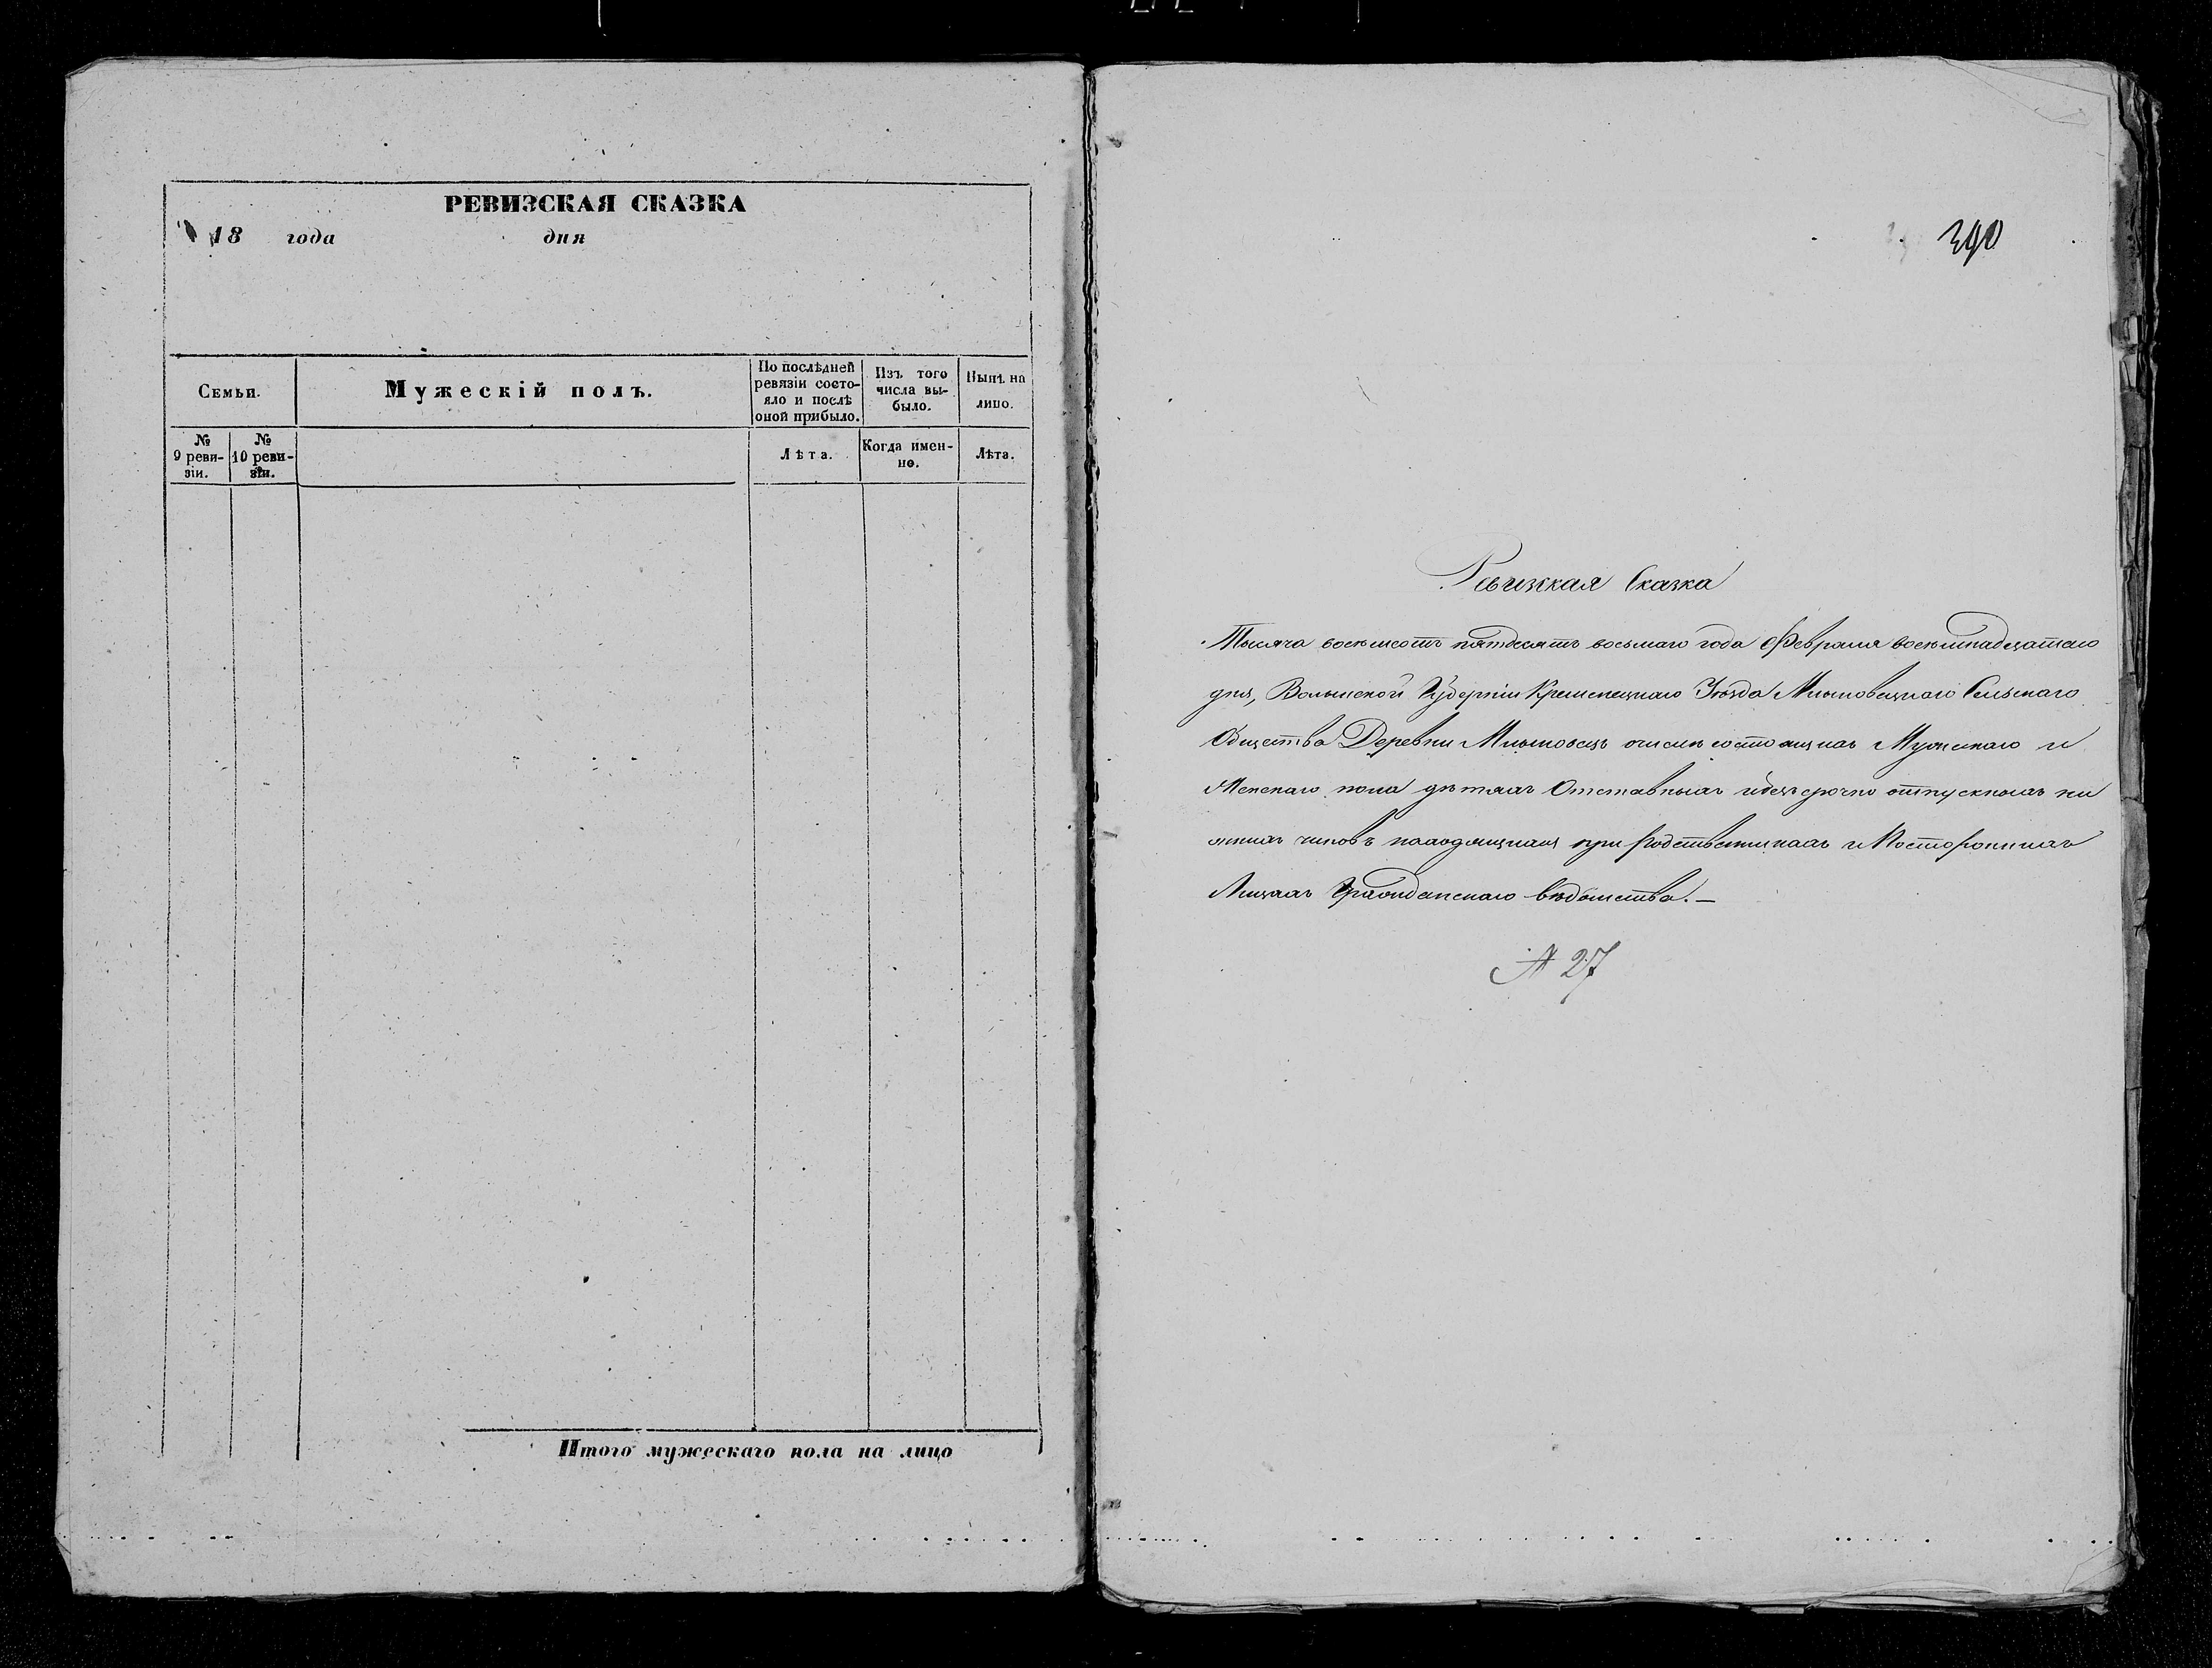 РЕВИЗСКАЯ СКАЗКА
18 года дня
Семьи.
Мужескій полъ.
По послѣдней ревизіи состо-
яло и послѣ
оной прибыло.
Изъ того
числа вы-
было.
Нынѣ на
лицо.
№
9 реви-
зіи.
№
10 реви-
зіи.
Лѣта.
Когда имен-
но.
Лѣта.
Итого мужескаго пола на лицо
390
Ревизкая Сказка
Тысяча восемьсотъ пятдесятъ восьмаго года Февраля восемнадцатаго
дня, Волынской Губерніи Кременецкаго Уѣзда Млыновецкаго Сельскаго
Общества Деревни Млыновецъ состоящихъ Мужскаго и
Женскаго пола дѣтяхъ Отставныхъ и безсрочно отпускныхъ ни
жнихъ чиновъ находящихся при Родственникахъ и Постороннихъ
Лицахъ Гражданскаго вѣдомства.—
№ 27